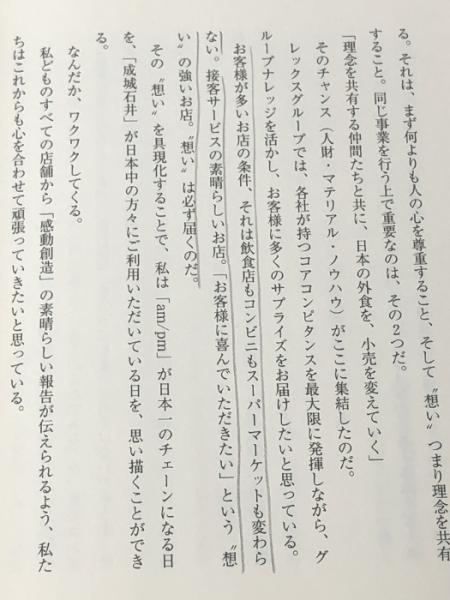 る。それは、まず何よりも人の心を尊重すること、そして〝想い〟つまり理念を共有
すること。同じ事業を行う上で重要なのは、その2つだ。
「理念を共有する仲間たちと共に、日本の外食を、小売を変えていく」
そのチャンス（人財・マテリアル・ノウハウ）がここに集結したのだ。
レックスグループでは、各社が持つコアコンピタンスを最大限に発揮しながら、グ
ループナレッジを活かし、お客様に多くのサプライズをお届けしたいと思っている。
お客様が多いお店の条件、それは飲食店もコンビニもスーパーマーケットも変わら
ない。接客サービスの素晴らしいお店。「お客様に喜んでいただきたい」という〝想
い〟の強いお店。〝想い〟は必ず届くのだ。
その〝想い〟を具現化することで、私は「am/pm」が日本一のチェーンになる日
を、「成城石井」が日本中の方々にご利用いただいている日を、思い描くことができ
る。
なんだか、ワクワクしてくる。
私どものすべての店舗から「感動創造」の素晴らしい報告が伝えられるよう、私た
ちはこれからも心を合わせて頑張っていきたいと思っている。